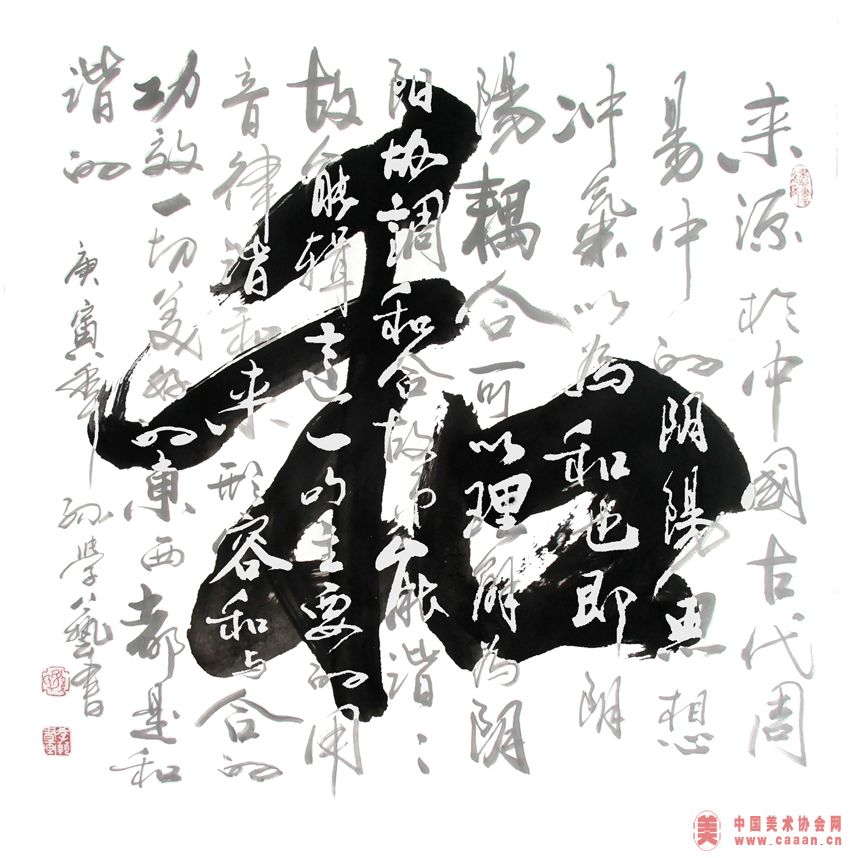 和
来源於中國古代周
易中的阴陽思想
冲氣以為和也即阴
陽耦合可以理解為阴
阳协調和合故而能谐〻
故能辑这一的主要的用
音律谐和来形容和与合的
功效一切美好的東西都是和
谐的
庚寅年 孙學艺書
中国美术协会网
www.caaan.cn